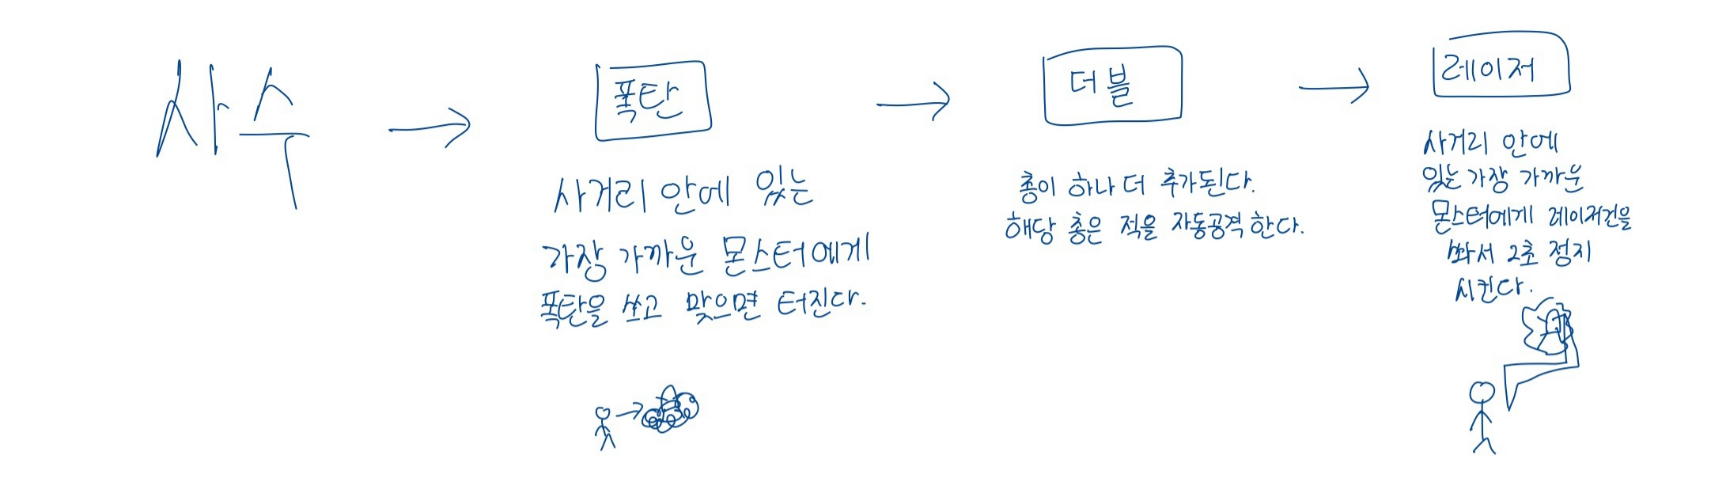 사수
폭탄
사거리 안에 있는
가장 가까운 몬스터에게
폭탄을 쏘고 맞으면 터진다.
더블
총이 하나 더 추가된다.
해당 총은 적을 자동공격 한다.
레이저
사거리 안에
있는 가장 가까운
몬스터에게 레이저건을
쏴서 2초 정지
시킨다.